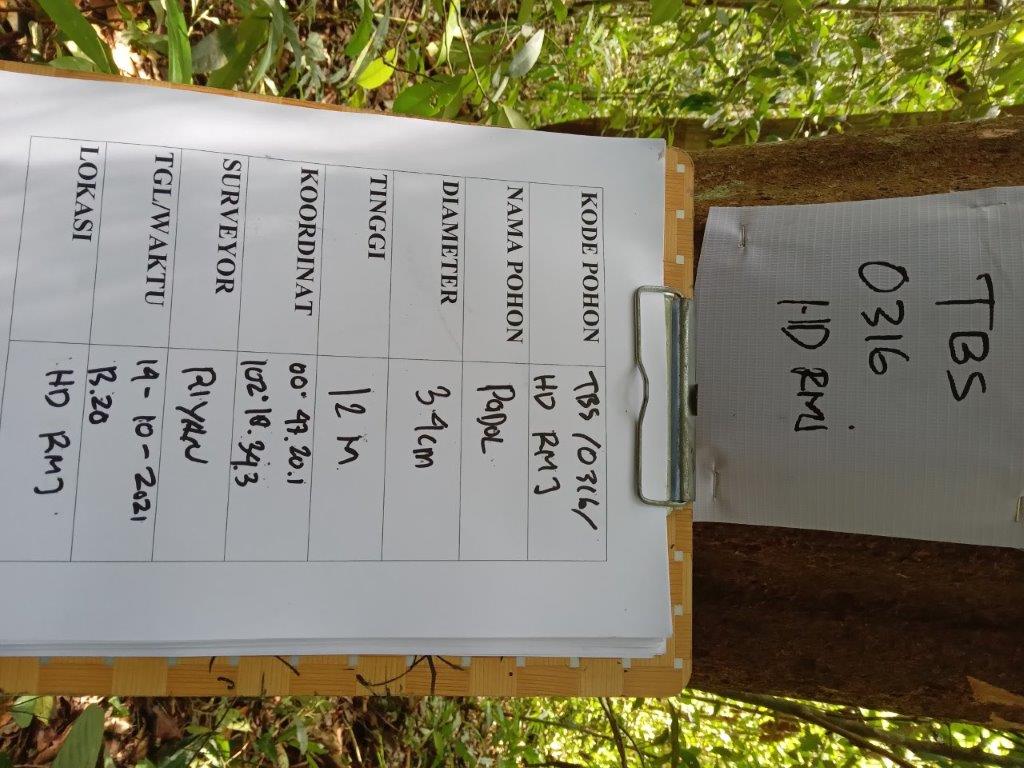 TBS
0316
HD RMJ
KODE POHON TBS/0316/
HD RMJ
NAMA POHON PODOL
DIAMETER 34cm
TINGGI 12 M
KOORDINAT 00° 47.20.1
102° 18.34.3
SURVEYOR RIYAN
TGL/WAKTU 14-10-2021
13.20
LOKASI HD RMJ